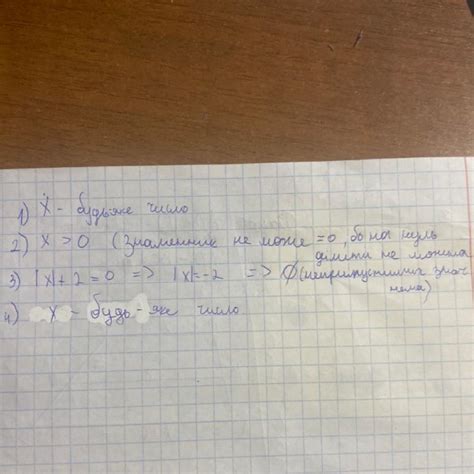 1) x - будь яке число
2) x > 0 (Знаменник не може = 0, бо на нуль
ділити не можна
3) |x| + 2 = 0 => |x| = -2 => ∅ (неприпустимих знач
нема)
4) x - будь - яке число